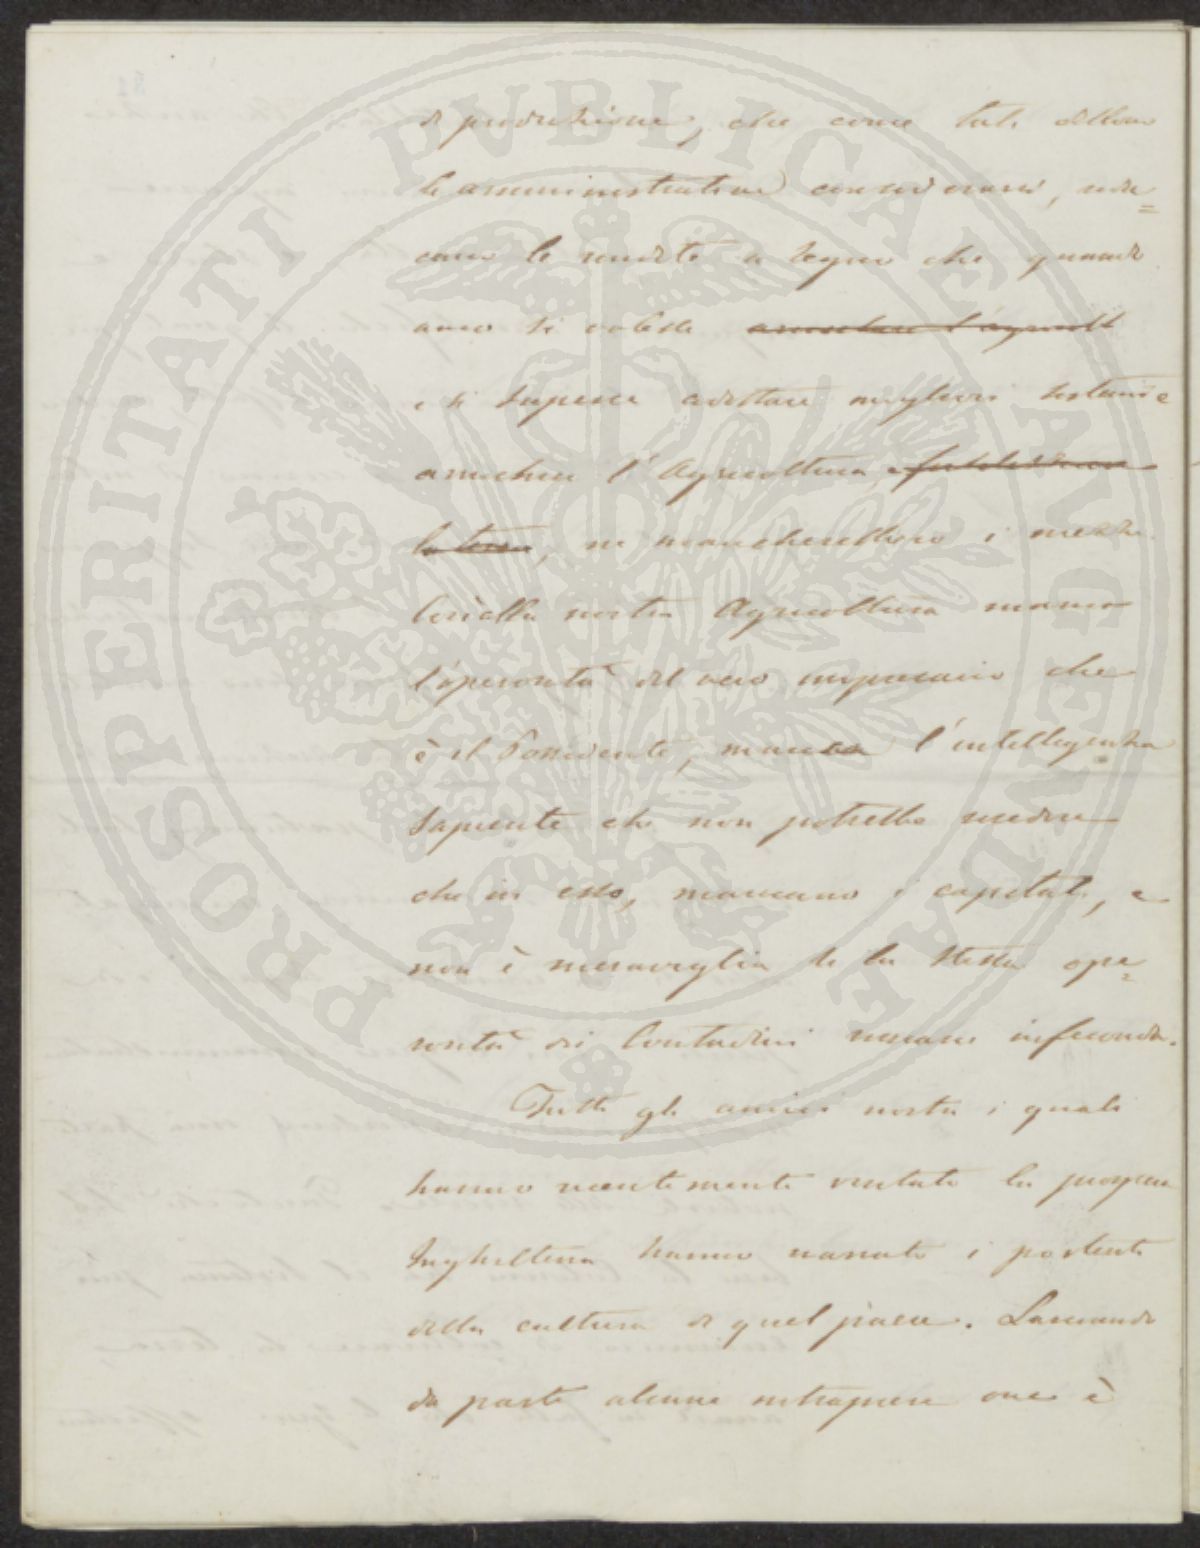 di produzione, che come tali debbono
le amministrative considerarsi, ridu=
cano le rendite a segno che quando
anco si volesse
e si sapesse adottare migliori sistemi e
arricchire l'Agricoltura,
la terra, ne mancherebbero i mezzi.
Così alla nostra Agricoltura manca
l'operosità del vero impresario che
è il Possidente, manca l'intelligenza
sapiente che non potrebbe risedere
che in esso, mancano i capitali, e
non è meraviglia se la stessa ope=
rosità dei Contadini rimane infeconda.
Tutti gli amici nostri i quali
hanno recentemente visitato la prospera
Inghilterra hanno narrato i portenti
della cultura di quel paese. Lasciando
da parte alcune intraprese ove è
PROSPERITATI PUBLICAE AUGENDAE